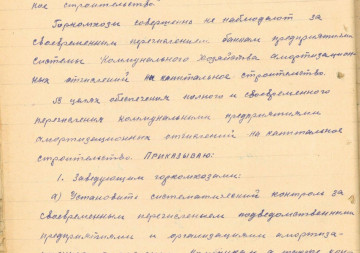 ное строительство
Горкомхозы совершенно не наблюдают за
своевременным перечислением банкам предприятиями
системы коммунального хозяйства амортизацион-
ных отчислений на капитальное строительство.
В целях обеспечения полного и своевременного
перечисления коммунальными предприятиями
амортизационных отчислений на капитальное
строительство. Приказываю:
1. Заведующим горкомхозами:
а) Установить систематический контроль за
своевременным перечислением подведомственными
предприятиями и организациями амортиза-
а также